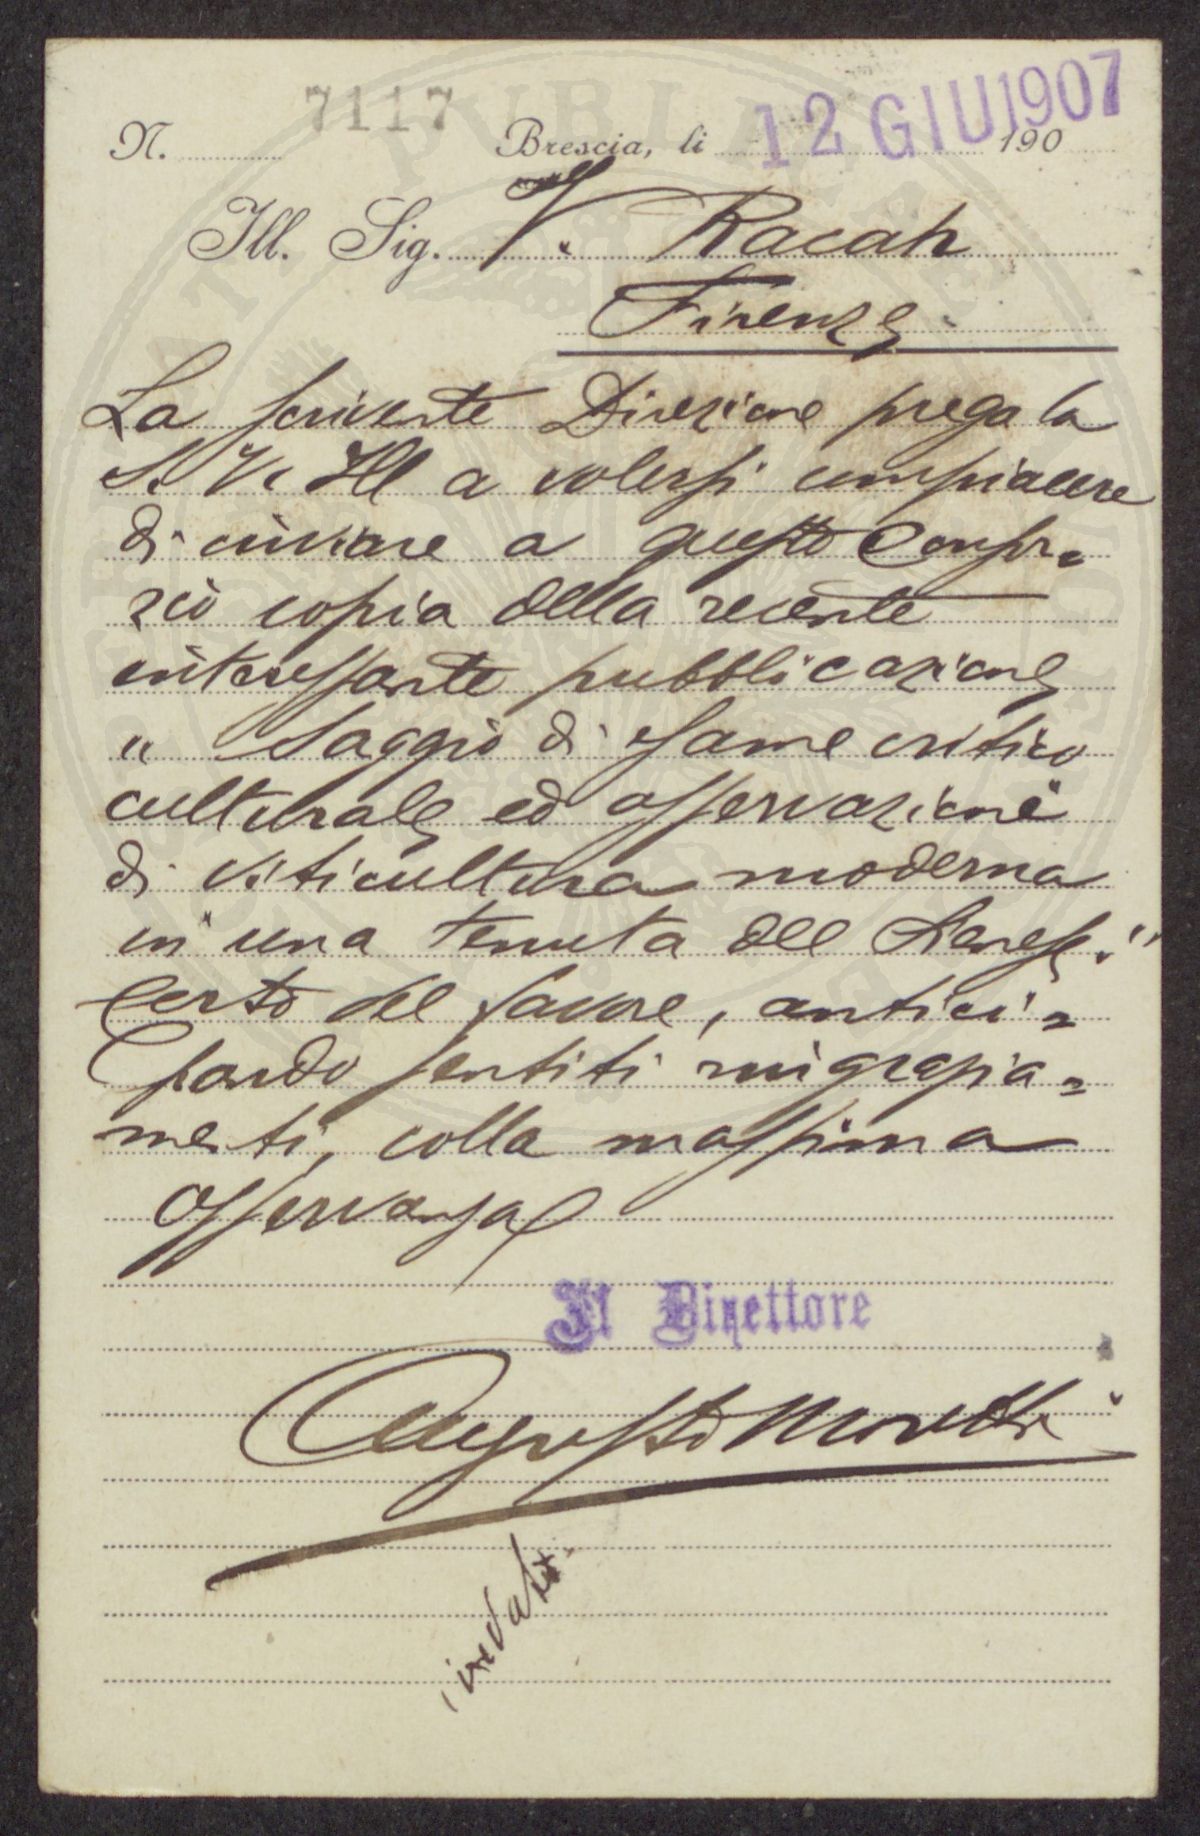 N. 7117 Brescia, li 12 GIU 1907 190
Ill. Sig. V. Racah
Firenze
La scrivente Direzione prega la
S. V. Ill a volersi compiacere
di inviare a questo Consor=
zio copia della recente
interessante pubblicazione
" Saggio di esame critico
culturale ed osservazioni
di viticultura moderna
in una tenuta del Senese."
Certo del favore, antici=
pando sentiti ringrazia=
menti, colla massima
osservanza
Il Direttore
Augusto Moretti